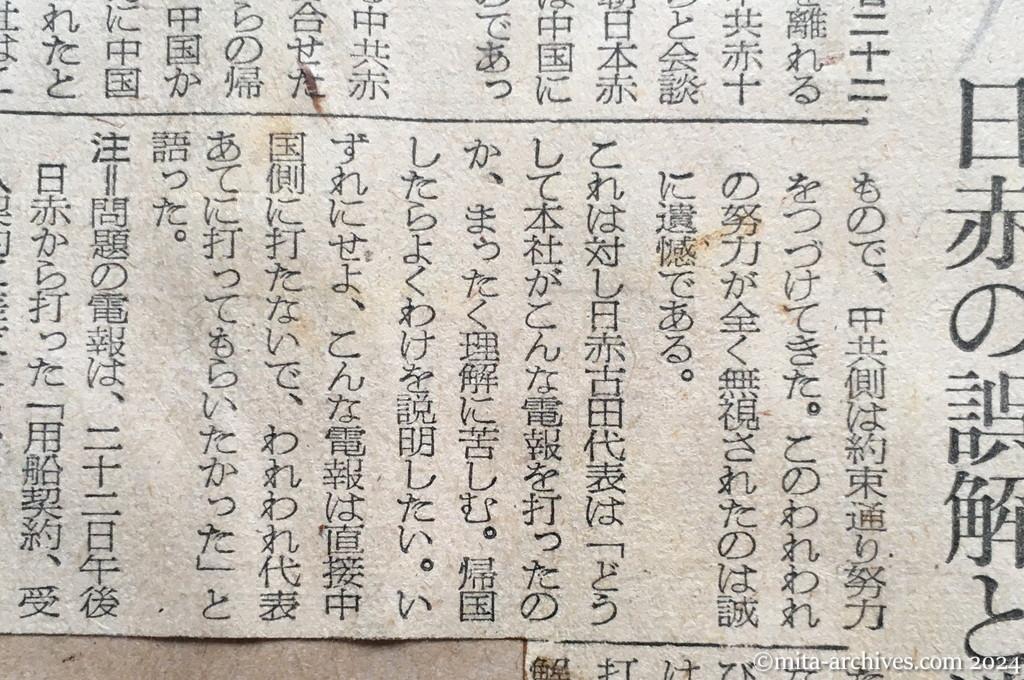 日赤の誤解と
二十二
離れる
共赤十
と会談
朝日本赤
は中国に
のであっ
る中共赤
合せた
らの帰
中国か
に中国
れたと
もので、中共側は約束通り努力
をつづけてきた。このわれわれ
の努力が全く無視されたのは誠
に遺憾である。
これは対し日赤古田代表は「どう
して本社がこんな電報を打ったの
か、まったく理解に苦しむ。帰国
したらよくわけを説明したい。い
ずれにせよ、こんな電報は直接中
国側に打たないで、われわれ代表
あてに打ってもらいたかった」と
語った。
注＝問題の電報は、二十二日午後
日赤から打った「用船契約、受
び
け
打
解
©mita-archives.com 2024